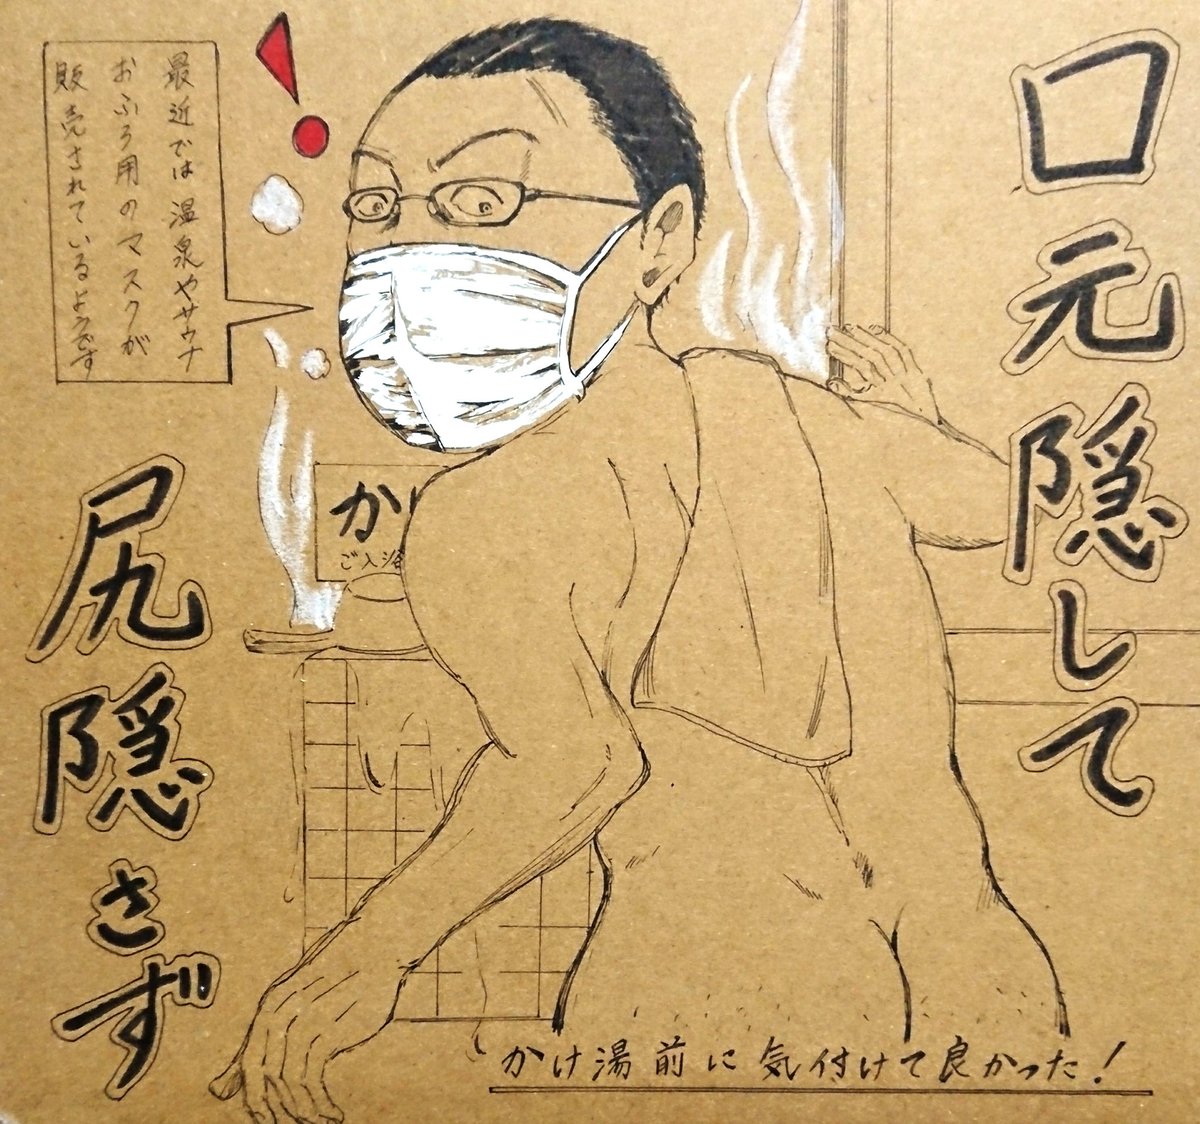 口元隠して
尻隠さず
最近では温泉やサウナ
おふろ用のマスクが
販売されているようです
か
ご入浴
かけ湯前に気付けて良かった！